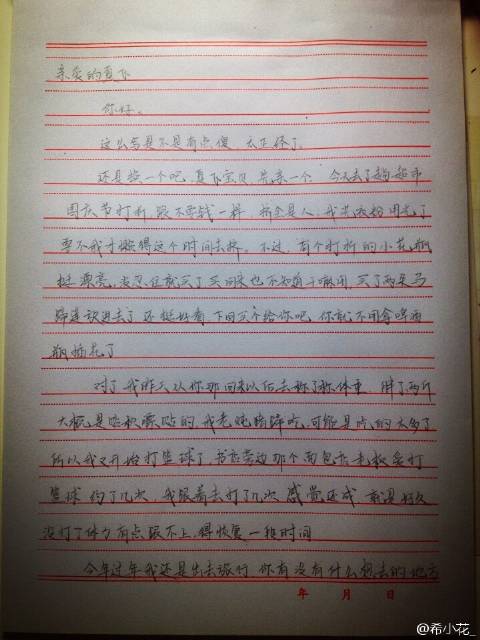 亲爱的夏下
你好。
这么写是不是有点傻 太正经了
还是换一个吧，夏下宝贝 先亲一个 今天去了趟超市
国庆节打折，跟不要钱一样，挤全是人，我洗衣粉用光了
要不我才懒得这个时间去挤，不过，有个打折的小花瓶
挺漂亮，没忍住就买了 买回来也不知道干嘛用，买了两朵马
蹄莲放进去了 还挺好看，下回买个给你吧，你就不用拿啤酒
瓶插花了
对了 我昨天从你那回来以后去称了称体重 胖了两斤
大概是吃的 我老 可能是吃的太多了
所以我又开始打篮球了，书店旁边那个面包店老板爱打
篮球 约了几次 我跟着去打了几次 感觉还成 就是好久
没打了体力有点跟不上，得恢复一段时间
今年过年我还是出去旅行 你有没有什么想去的地方
年 月 日
@希小花_